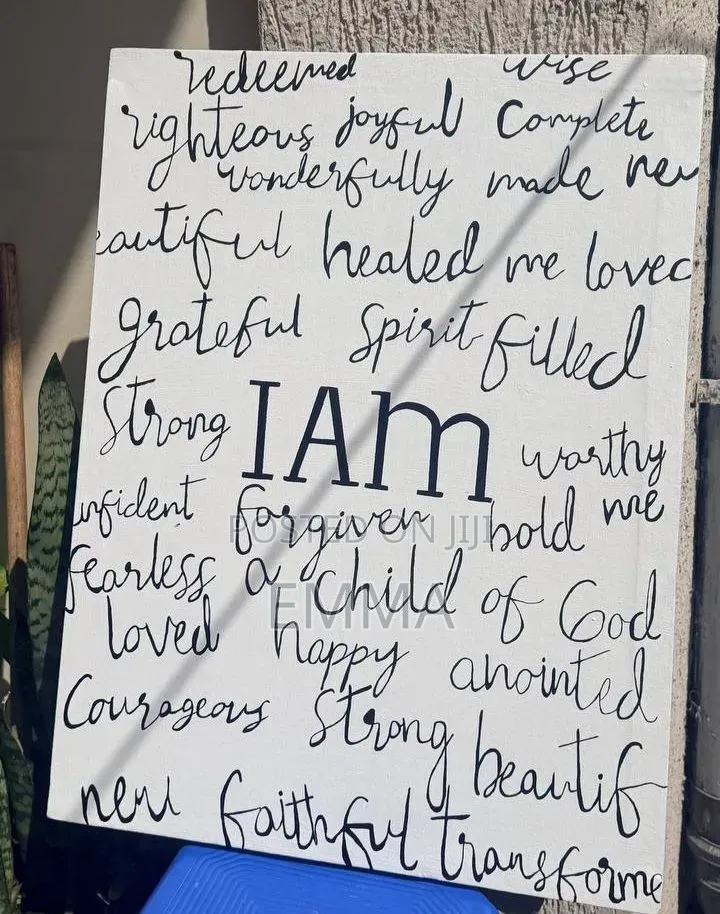 redeemed wise
righteous joyful Complete
wonderfully made new
eautiful healed me loved
grateful Spirit filled
Strong I Am worthy
nfident forgiven bold me
POSTED ON JIJI
fearless a child of God
EMMA
loved happy anointed
Courageous Strong beautif
new faithful transforme